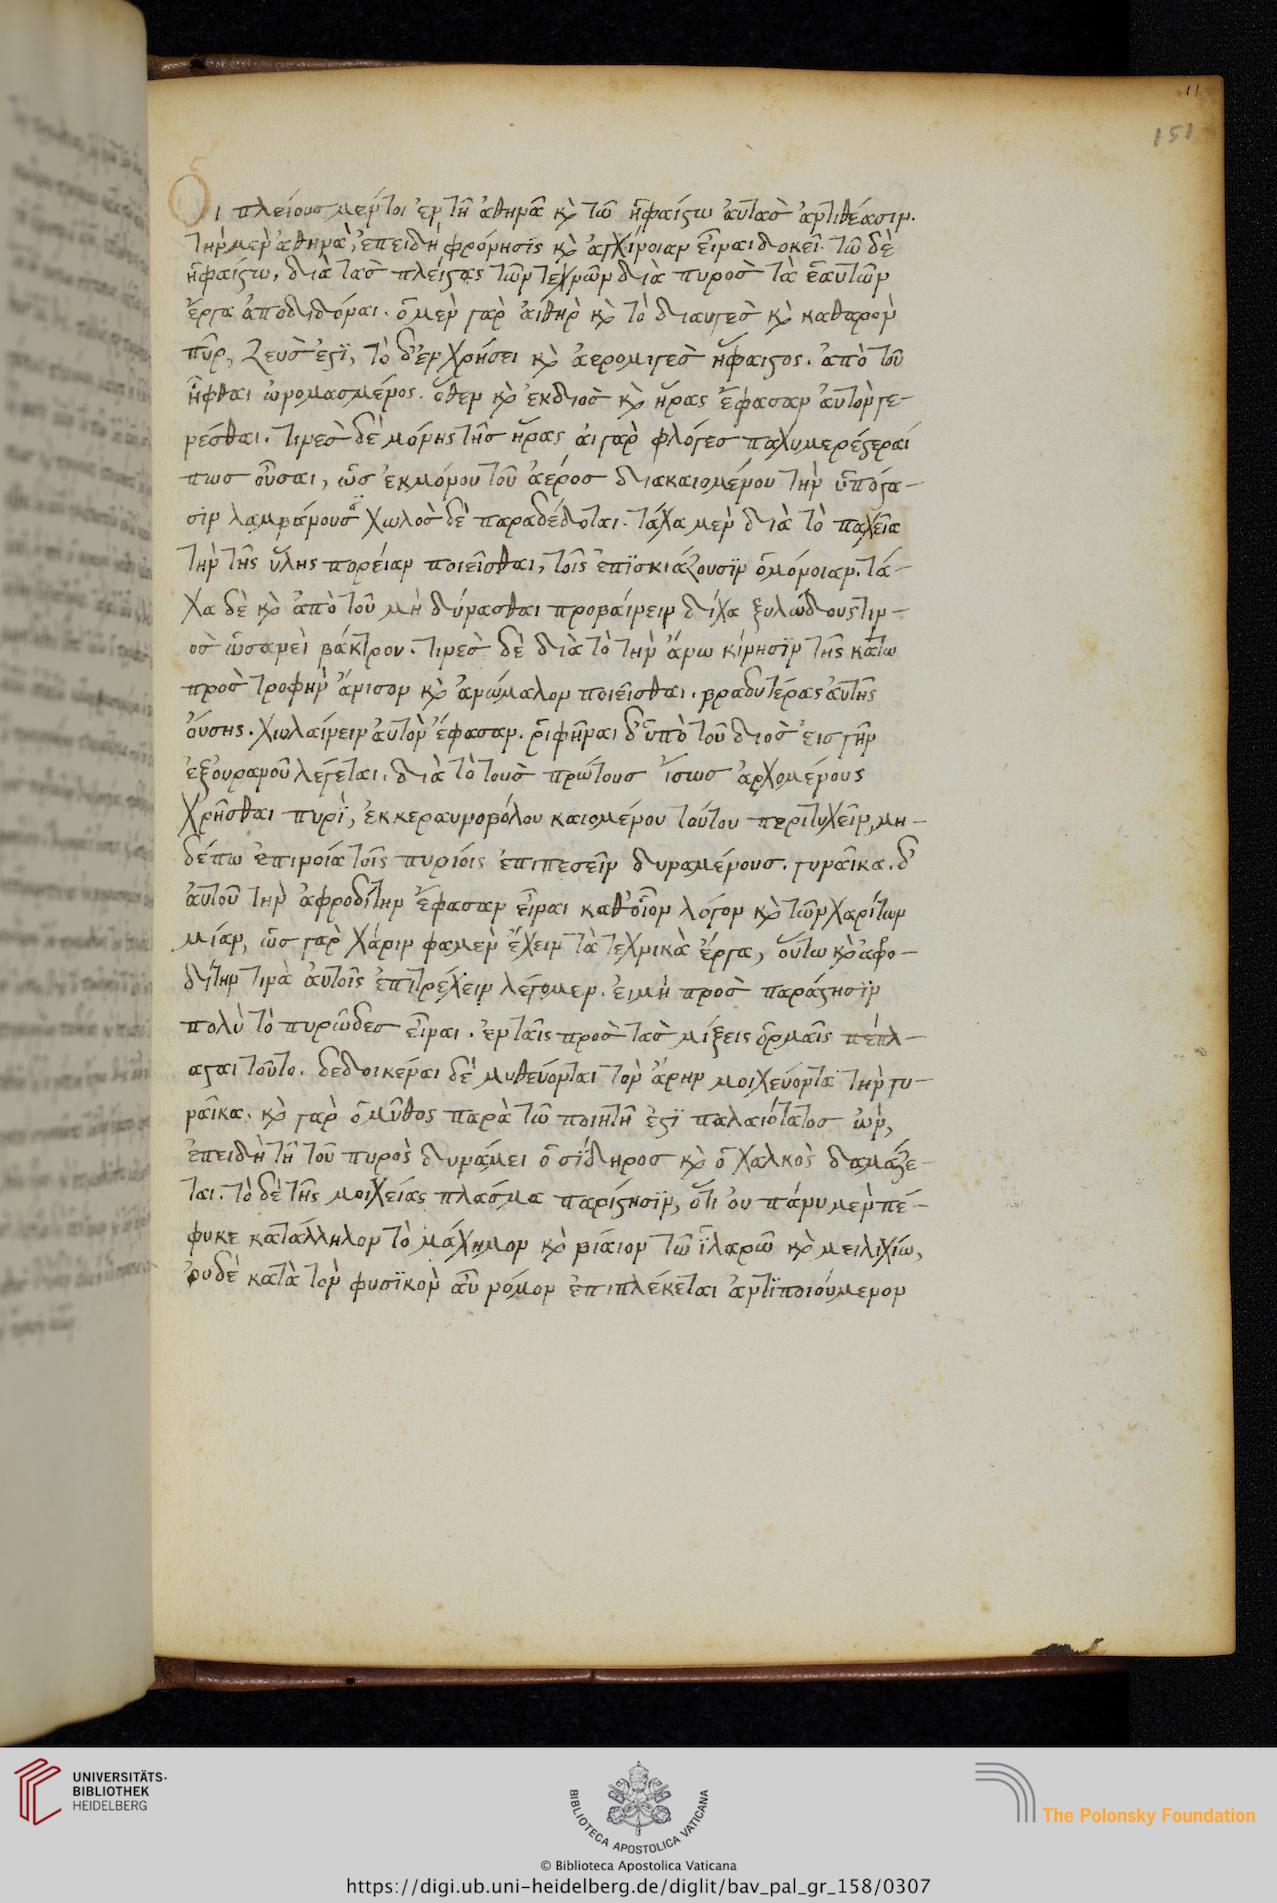 11
151
Οι πλείους μέντοι ἐν τῆ ἀθηνᾶ κ τῶ ἡφαίστω ἀυτὰσ ἀντιθέασιν.
τὴν μὲν ἀθηνᾶ, ἐπειδὴ φρόνησϊς κ ἀγχίνοιαν εἶναι δοκεῖ. τῶ δὲ
ἡφαίστω, διὰ τὰσ πλείστας τῶν τεχνῶν διὰ πυρὸσ τὰ ἑαυτῶν
ἔργα ἀποδιδόναι. ὁ μὲν γὰρ ἀιθὴρ κ τὸ διαυγὲσ κ καθαρὸν
πῦρ, Ζεὺσ ἐστϊ, τὸ δ' ἐν χρήσει κ ἀερομιγὲσ ἥφαιστος. ἀπὸ τοῦ
ἧφθαι ὠνομασμένος. ὅθεν κ ἐκ διὸσ κ ἥρας ἔφασαν ἀυτὸν γε-
νέσθαι. τινὲσ δὲ μόνης τῆσ ἥρας ἁι γὰρ φλόγεσ παχυμερέστεραί
πωσ οὖσαι, ὡσ ἐκ μόνου τοῦ ἀέροσ διακαιομένου τὴν ὑπόστα-
σϊν λαμβάνουσϊ χωλὸσ δὲ παραδέδοται. τάχα μὲν διὰ τὸ παχεῖα
τὴν τῆς ὕλης πορείαν ποιεῖσθαι, τοῖς ἐπϊσκιάζουσϊν ὁμόνοιαν. τά-
χα δὲ κ ἀπὸ τοῦ μὴ δύνασθαι προβαίνειν δίχα ξυλώδους τιν-
οσ ὡσανεὶ βάκτρον. τινὲσ δὲ διὰ τὸ τὴν ἄνω κίνησϊν τῆς κάτω
πρὸσ τροφὴν ἄνισον κ ἀνώμαλον ποιεῖσθαι. βραδυτέρας ἀυτῆς
ὀύσης. χωλαίνειν ἀυτὸν ἔφασαν. ῥιφῆναι δ' ὑπὸ τοῦ διὸσ ἐισ γῆν
ἐξ ὀυρανοῦ λέγεται. διὰ τὸ τοὺσ πρώτουσ ἴσωσ ἀρχομένους
χρῆσθαι πυρϊ, ἐκ κεραυνοβόλου καιομένου τούτου περιτυχεῖν, μη-
δέπω ἐπινοία τοῖς πυρίοις ἐπιπεσεῖν δυναμένουσ. γυναῖκα. δ'
ἀυτοῦ τὴν ἀφροδίτην ἔφασαν εἶναι καθ' οἷον λόγον κ τῶν χαρίτων
μίαν, ὡσ γὰρ χάριν φαμὲν ἔχειν τὰ τεχνικὰ ἔργα, ὅυτω κ ἀφρο-
δίτην τινὰ ἀυτοῖς ἐπιτρέχειν λέγομεν. ἐι μὴ πρὸσ παράστησϊν
πολὺ τὸ πυρῶδεσ εἶναι. ἐν ταῖς πρὸσ τὰσ μίξεις ὁρμαῖς πέπλ-
ασται τοῦτο. δεδοικέναι δὲ μυθεύονται τὸν ἄρην μοιχεύοντα τὴν γυ-
ναῖκα. κ γὰρ ὁ μῦθος παρὰ τῶ ποιητῆ ἐστϊ παλαιότατοσ ὢν,
ἐπειδὴ τῆ τοῦ πυρὸς δυνάμει ὁ σίδηροσ κ ὁ χαλκὸς δαμάζε-
ται. τὸ δὲ τῆς μοιχείας πλάσμα παρίστησϊν, ὅτι ὀυ πάνυ μὲν πέ-
φυκε κατάλληλον τὸ μάχημον κ βίαιον τῶ ἱλαρῶ κ μειλιχίω,
ὀυδὲ κατὰ τὸν φυσϊκὸν ἀυ νόμον ἐπιπλέκεται ἀντϊποιούμενον
UNIVERSITÄTS-
BIBLIOTHEK
HEIDELBERG
BIBLIOTECA APOSTOLICA VATICANA
The Polonsky Foundation
© Biblioteca Apostolica Vaticana
https://digi.ub.uni-heidelberg.de/diglit/bav_pal_gr_158/0307